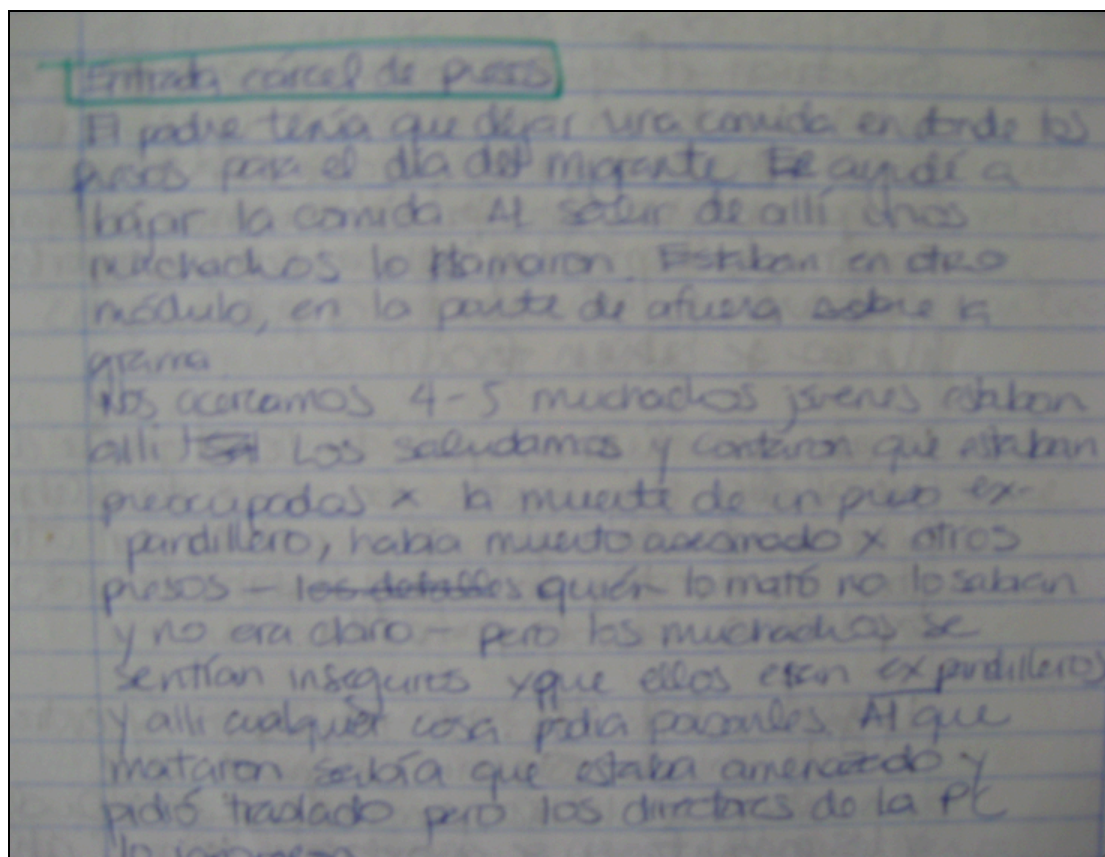 Entrada cárcel de presos
El padre tenía que dejar una comida en donde los
presos para el día del migrante. Le ayudé a
bajar la comida. Al salir de allí unos
muchachos lo llamaron. Estaban en otro
módulo, en la parte de afuera sobre la
grama.
Nos acercamos 4-5 muchachos jóvenes estaban
allí. Los saludamos y contaron que estaban
preocupados x la muerte de un preso ex-
pandillero, había muerto asesinado x otros
presos - los detalles quién lo mató no lo sabían
y no era claro - pero los muchachos se
sentían inseguros xque ellos eran ex pandilleros
y allí cualquier cosa podía pasarles. Al que
mataron sabía que estaba amenazado y
pidió traslado pero los directores de la PC
lo